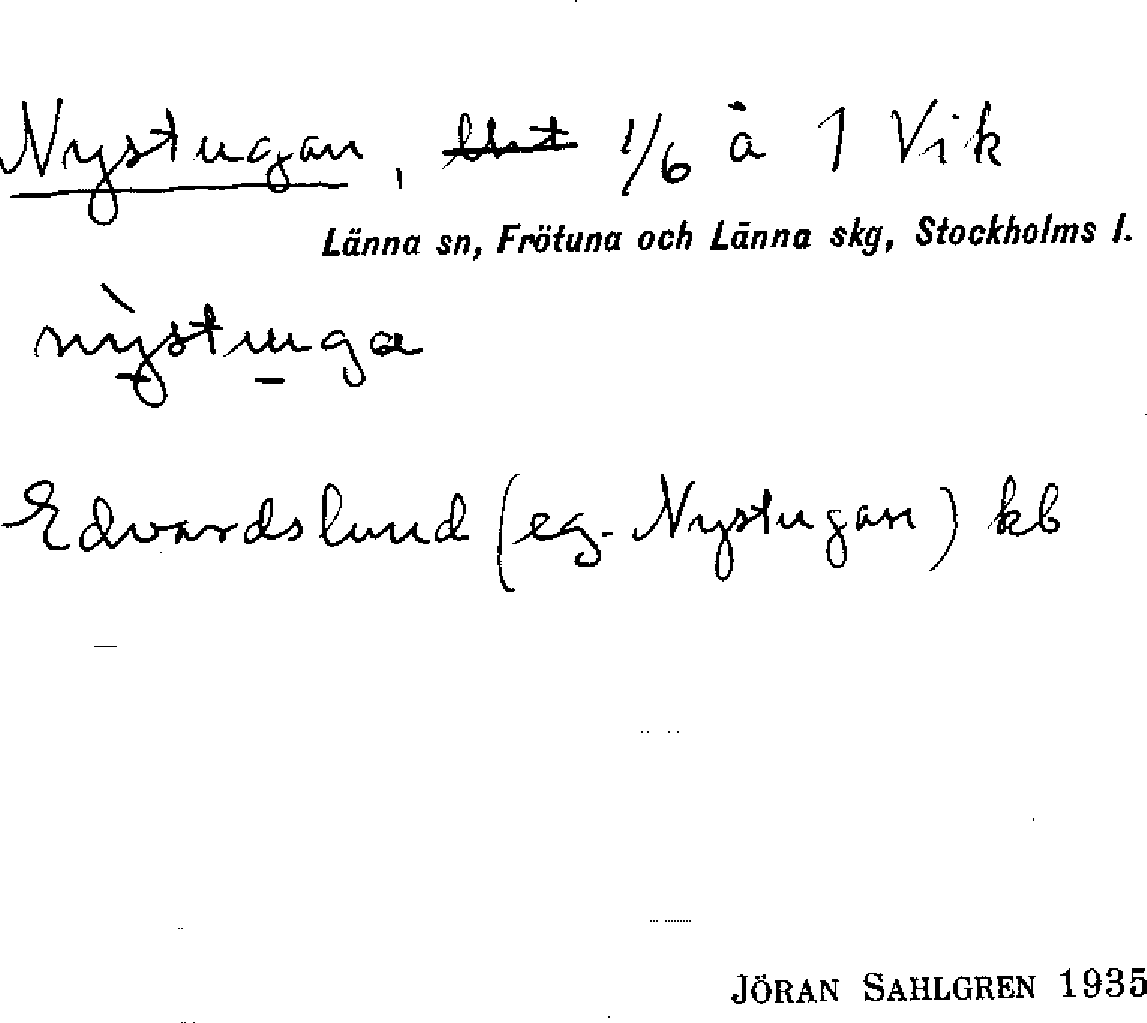 Nystugan, 1/6 å 1 Vik
Länna sn, Frötuna och Länna skg, Stockholms l.
nỳstuga
Edvardslund (eg. Nystugan) kb
JÖRAN SAHLGREN 1935